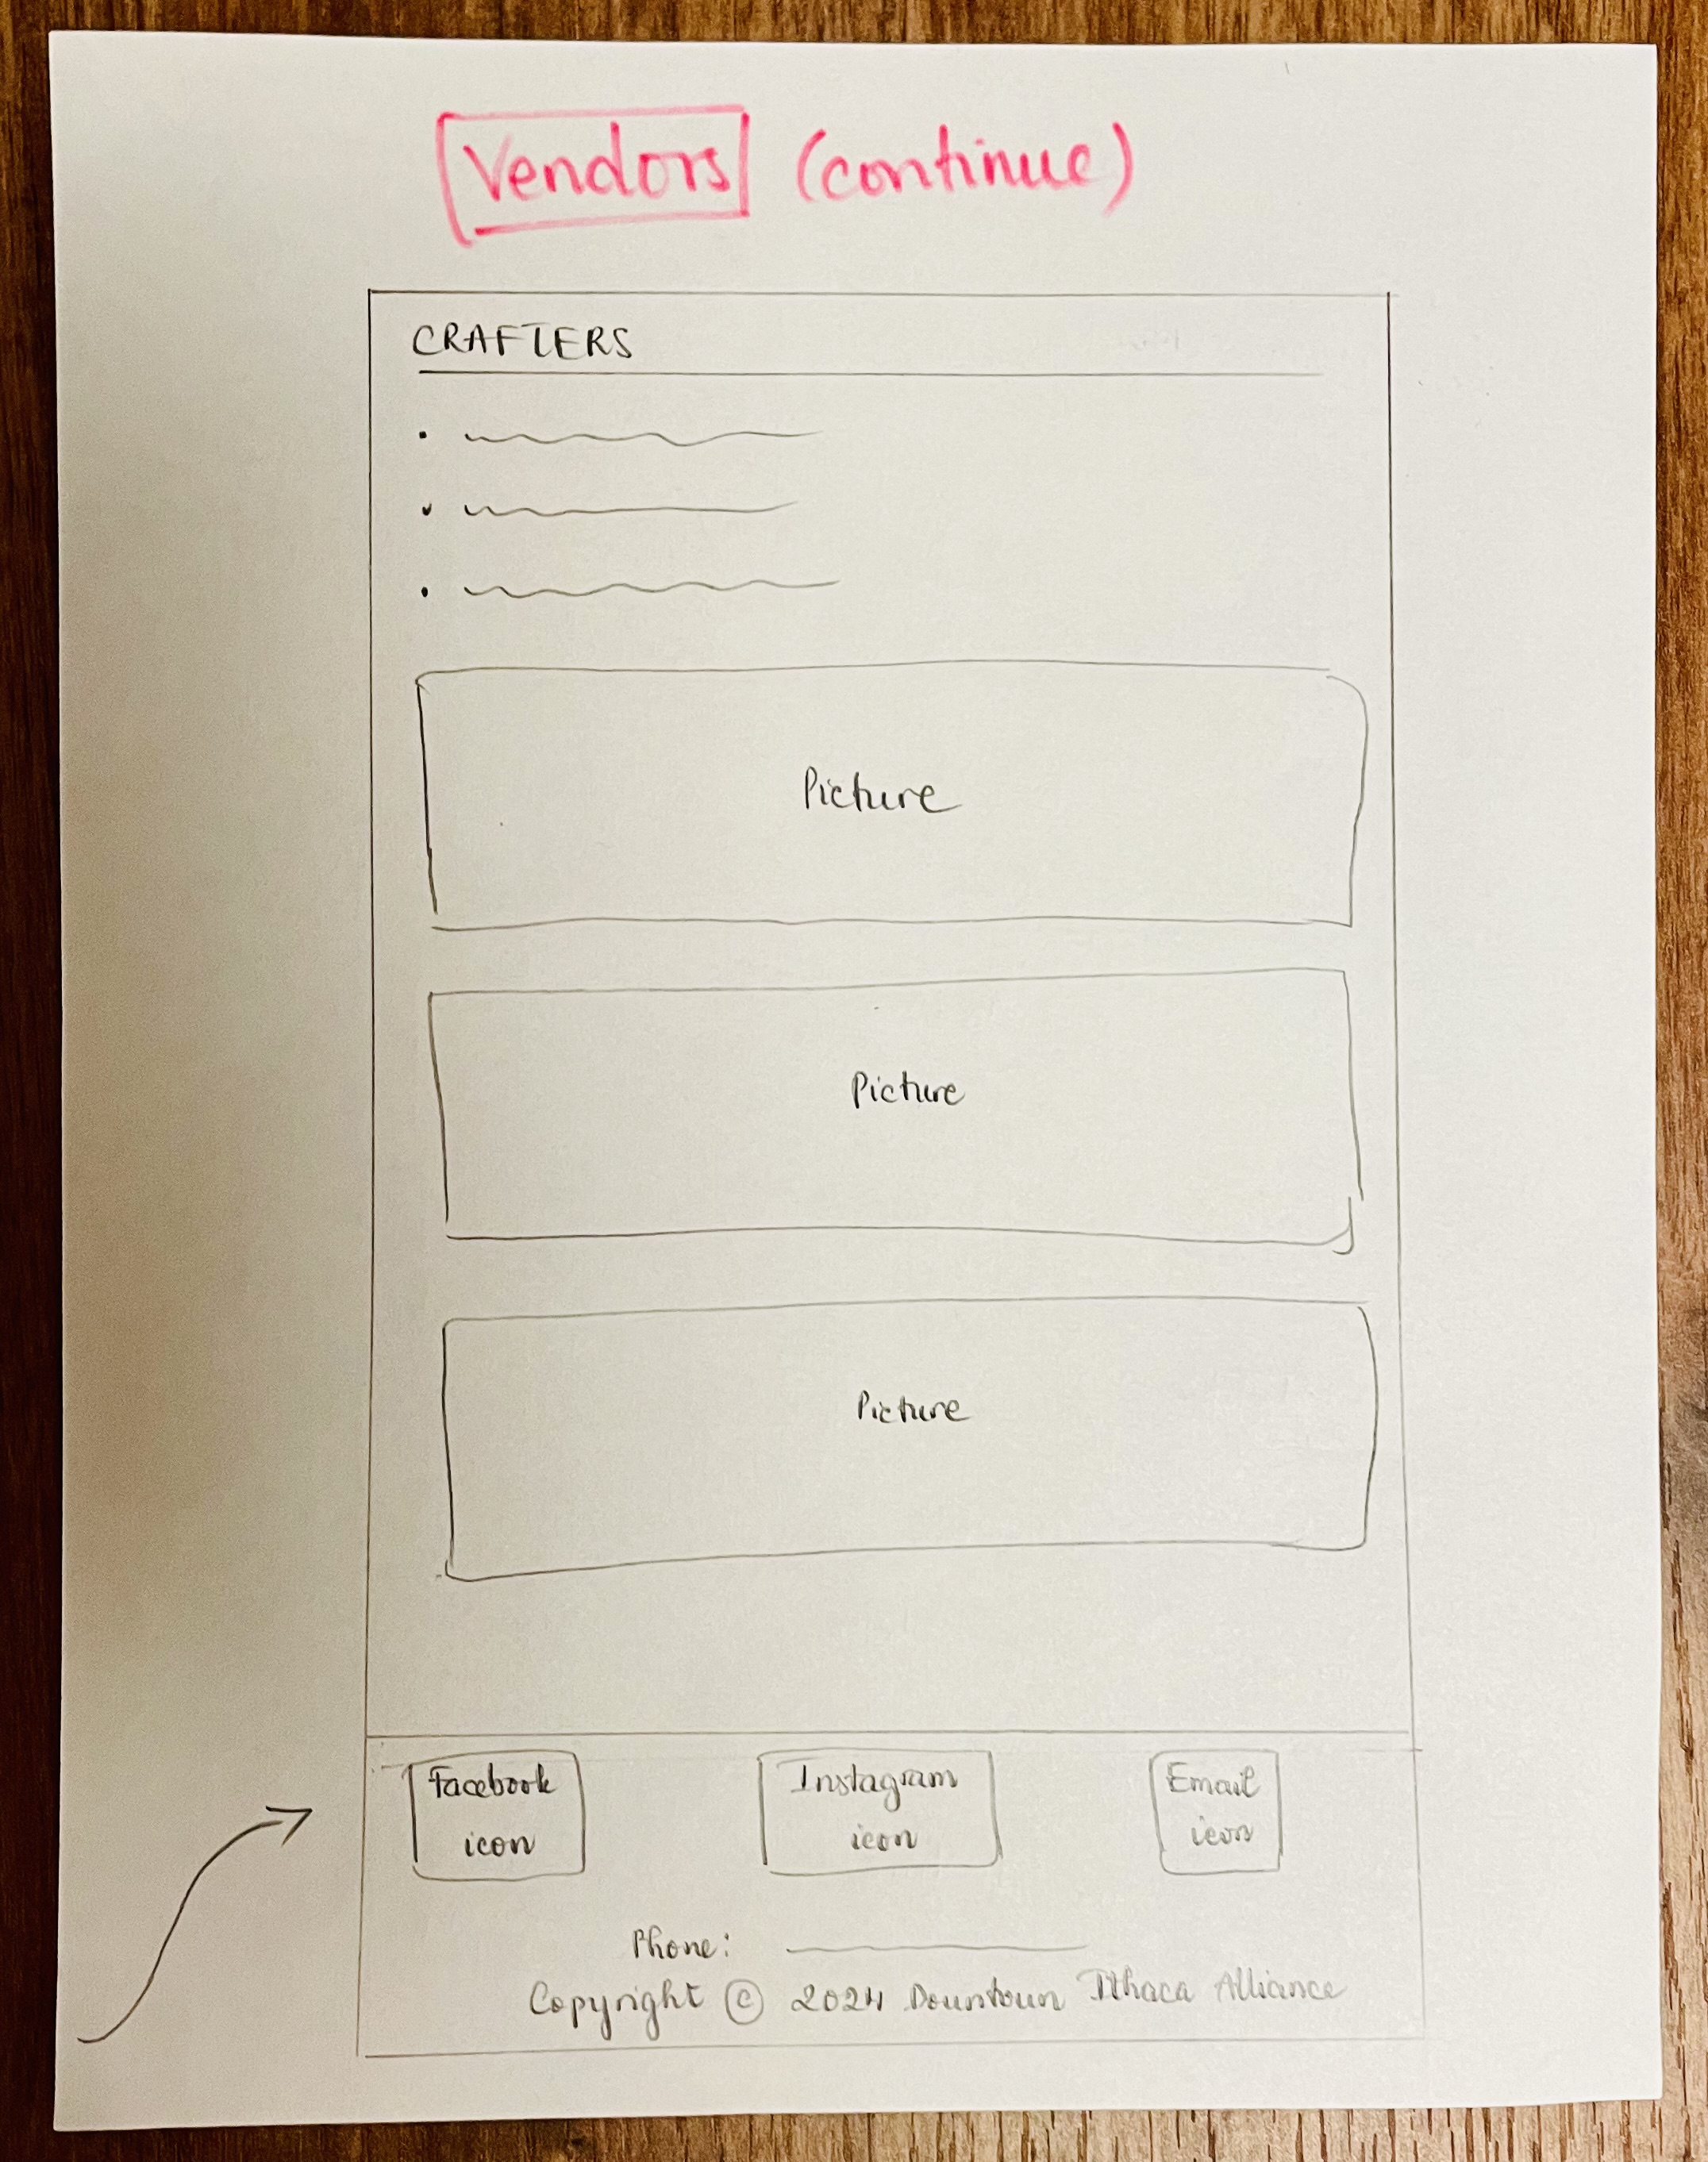 Vendors (continue)
CRAFTERS
Picture
Picture
Picture
Facebook icon
Instagram icon
Email icon
Phone:
Copyright © 2024 Downtown Ithaca Alliance